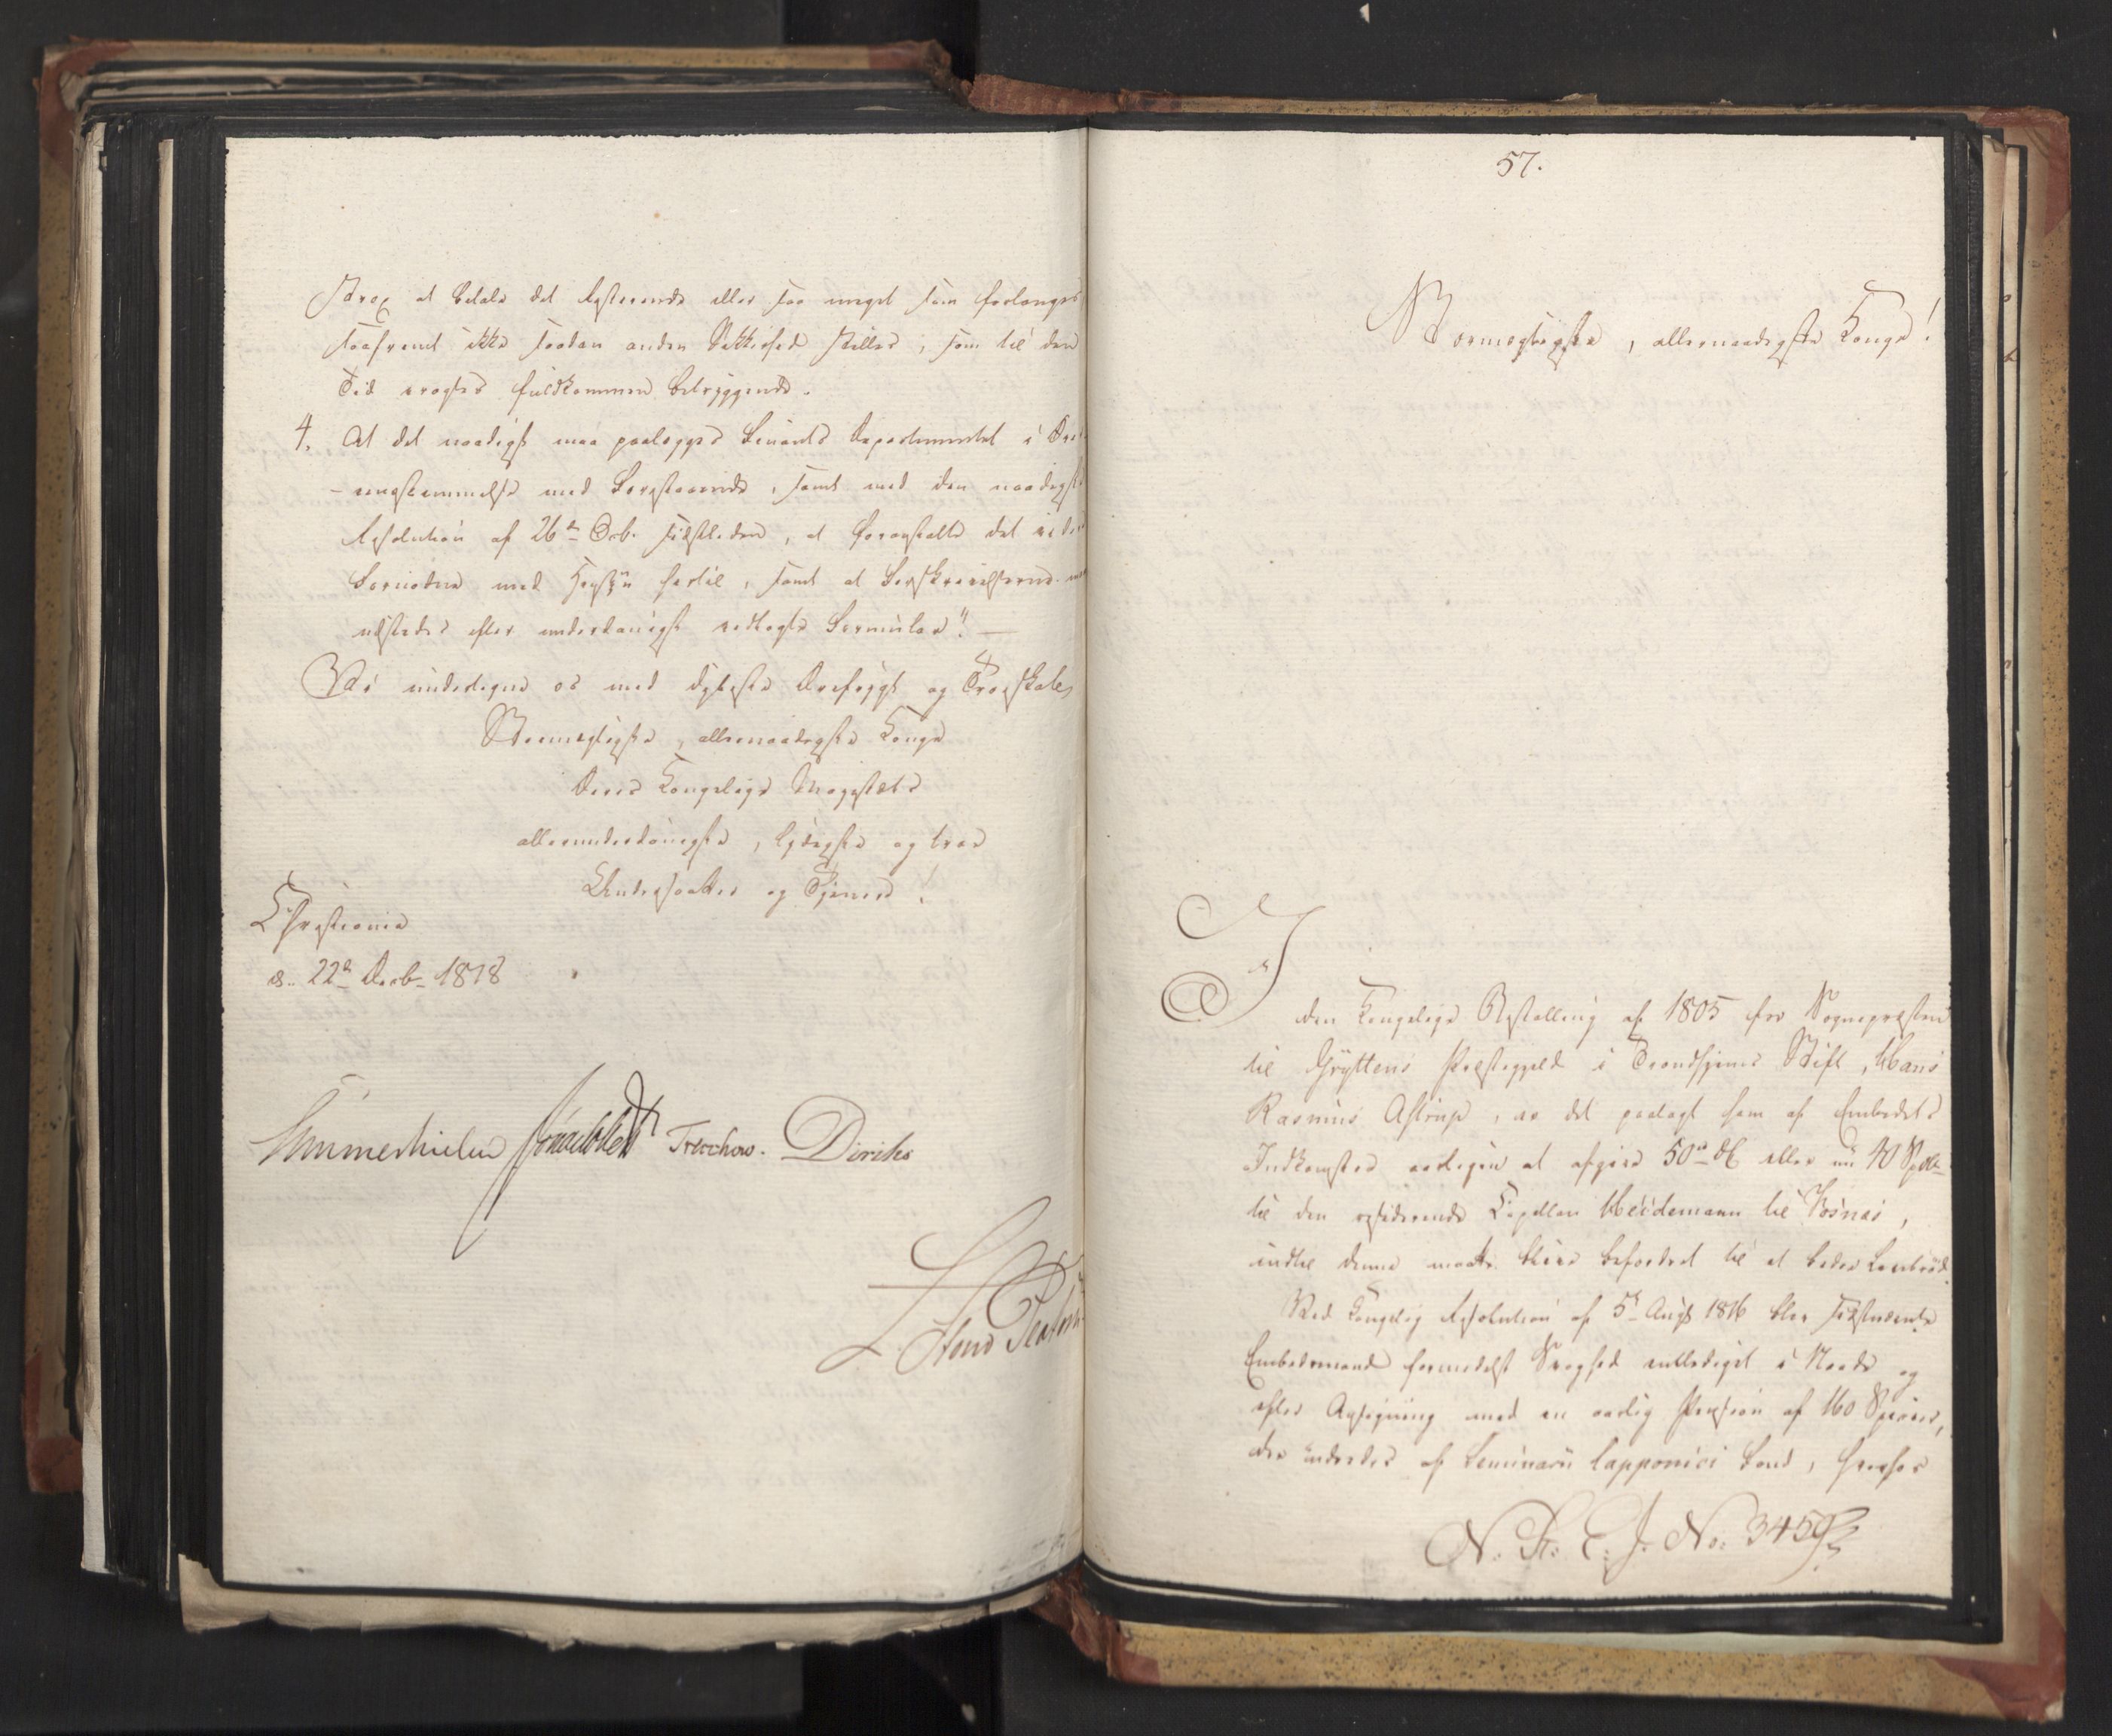 strax at betale det Resterende eller saa meget som forlanges
saafremt ikke saadan anden Sikkerhed stilles, som til den
Tid eragtes fuldkommen betryggende.
4. At det naadigst maa paalægges Finants Departementet i Over-
-eensstemmelse med Foranstaaende, samt med den naadigste
Resolution af 26de Octb. sidstleden, at foranstalte det videre
Fornødne med Hensyn hertil, samt at Forskrivelserne
udstedes efter underdanigst vedlagte Formular". —
Vi undertegne os med dybeste Ærefrygt og Troeskab,
Stormægtigste, allernaadigste Konge
Deres Kongelige Majestæts
allerunderdanigste, lydigste og troe
Undersaatter og Tjenere!
Christiania
d. 22de Decb. 1818
Sommerhielm Treschow. Diriks
57.
Stormægtigste, allernaadigste Konge!
I
den Kongelige Bestalling af 1805 for Sognepræsten
til Gryttens Præstegjeld i Trondhjems Stift, Hans
Rasmus Astrup, er det paalagt ham af Embedets
Indkomster aarligen at afgive 50 rd eller nu 40 Spdlr
til den residerende Capellan Heidemann til Vosnæs,
indtil denne maatte blive befordret til et bedre Levebrød.
Ved Kongelig Resolution af 5te Augst 1816 blev sidstnævnte
Embedsmand formedelst Svaghed entlediget i Naade og
efter Ansøgning med en aarlig Pension af 160 Species,
der udredes af Seminarii lapponici Fond, hvorhos
N. St: C: J. No: 3459